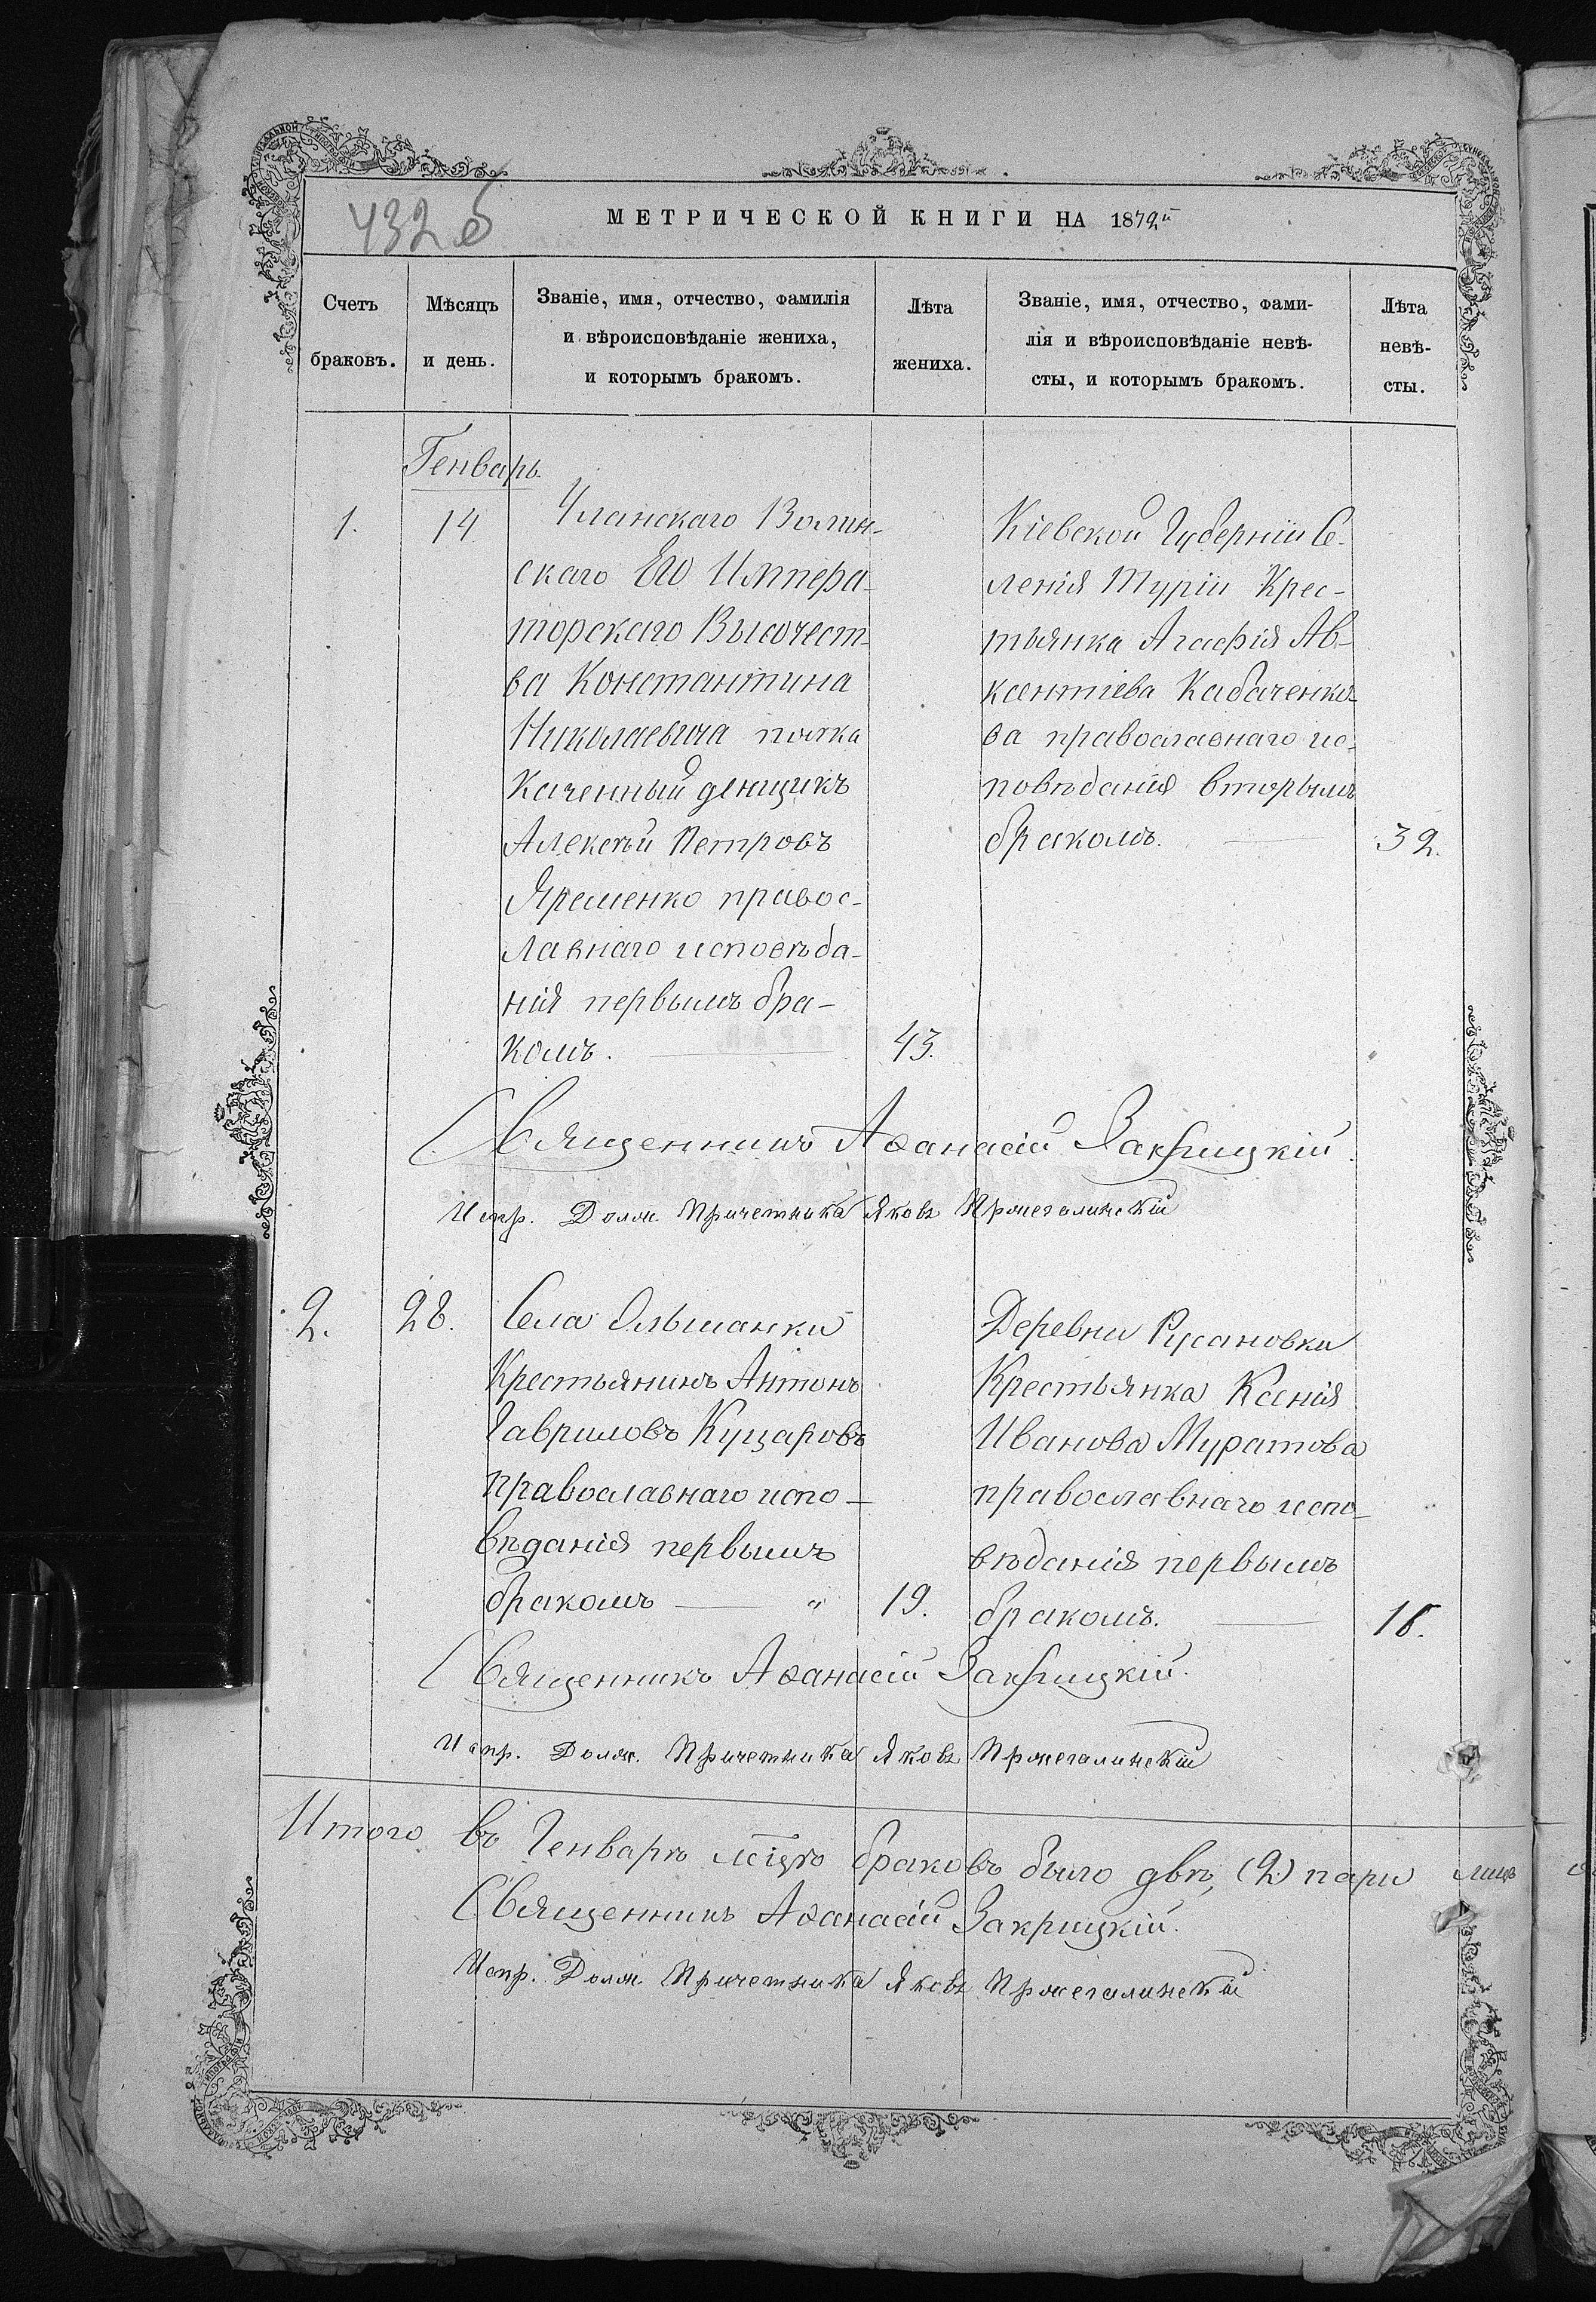 432 об
МЕТРИЧЕСКОЙ КНИГИ НА 1872й
Счетъ
браковъ.
Мѣсяцъ
и день.
Званіе, имя, отчество, фамилія
и вѣроисповѣданіе жениха,
и которымъ бракомъ.
Лѣта
жениха.
Званіе, имя, отчество, фами-
лія и вѣроисповѣданіе невѣ-
сты, и которымъ бракомъ.
Лѣта
невѣ-
сты.
Генварь.
1.
14
Уланскаго Волин-
скаго Его Импера-
торскаго Высочест-
ва Константина
Николаевича полка
Каченный денщикъ
Алексѣй Петровъ
Яременко правос-
лавнаго исповѣда-
нія первымъ бра-
комъ.
43.
Кіевской Губерніи Се-
ленія Туріи Крес-
тьянка Агафія Ав-
ксентіева Кабаченко-
ва православнаго ис-
повѣданія вторымъ
бракомъ.
32.
Священникъ Аѳанасій Закрицкій.
Испр. Долж. Причетника Яковъ Пржегалинскій
2.
28.
Села Ольшанки
Крестьянинъ Антонъ
Гавриловъ Куцаровъ
православнаго испо-
вѣданія первымъ
бракомъ "
19.
Деревни Русановки
Крестьянка Ксенія
Иванова Муратова
православнаго испо-
вѣданія первымъ
бракомъ.
18.
Священникъ Аѳанасій Закрицкій.
Испр. Долж. Причетника Яковъ Пржегалинскій
Итого въ Генварѣ мѣцѣ браковъ было двѣ, (2) пари лицъ
Священникъ Аѳанасій Закрицкій.
Испр. Долж. Причетника Яковъ Пржегалинскій